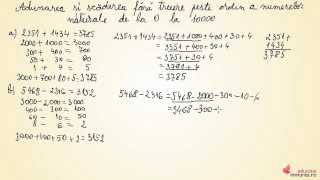 Adunarea si scaderea fără trecere peste ordin a numerelor
naturale de la 0 la 10000
a) 2351 + 1434 = 3785
2000 + 1000 = 3000
300 + 400 = 700
50 + 30 = 80
1 + 4 = 5
3000 + 700 + 80 + 5 = 3785
b) 5468 - 2316 = 3152
5000 - 2000 = 3000
400 - 300 = 100
60 - 10 = 50
8 - 6 = 2
3000 + 100 + 50 + 2 = 3152
2351 + 1434 = 2351 + 1000 + 400 + 30 + 4
= 3351 + 400 + 30 + 4
= 3751 + 30 + 4
= 3781 + 4
= 3785
2351 +
1434
3785
5468 - 2316 = 5468 - 2000 - 300 - 10 - 6
= 3468 - 300 -